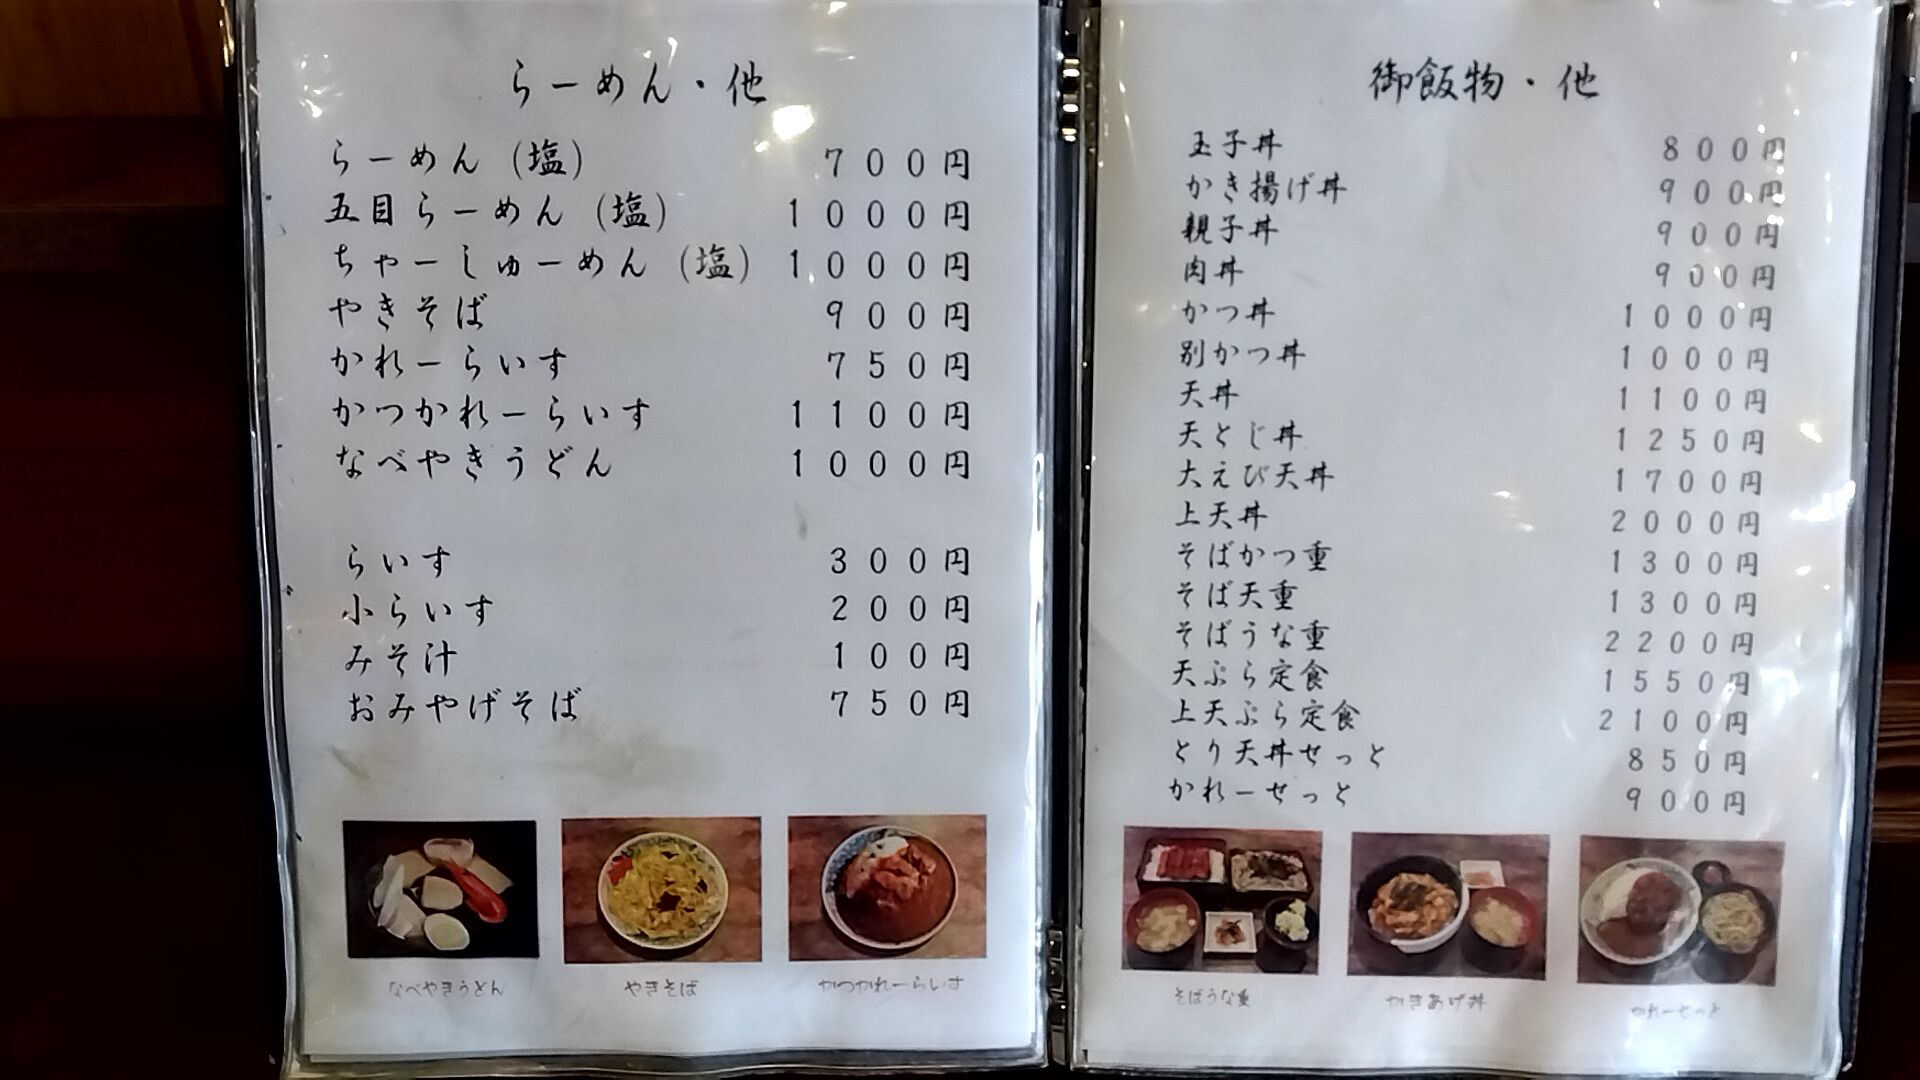 らーめん・他
らーめん(塩) 700円
五目らーめん(塩) 1000円
ちゃーしゅーめん(塩) 1000円
やきそば 900円
かれーらいす 750円
かつかれーらいす 1100円
なべやきうどん 1000円
らいす 300円
小らいす 200円
みそ汁 100円
おみやげそば 750円
なべやきうどん
やきそば
かつかれーらいす
御飯物・他
玉子丼 800円
かき揚げ丼 900円
親子丼 900円
肉丼 900円
かつ丼 1000円
別かつ丼 1000円
天丼 1100円
天とじ丼 1250円
大えび天丼 1700円
上天丼 2000円
そばかつ重 1300円
そば天重 1300円
そばうな重 2200円
天ぷら定食 1550円
上天ぷら定食 2100円
とり天丼せっと 850円
かれーせっと 900円
そばうな重
かきあげ丼
かれーせっと